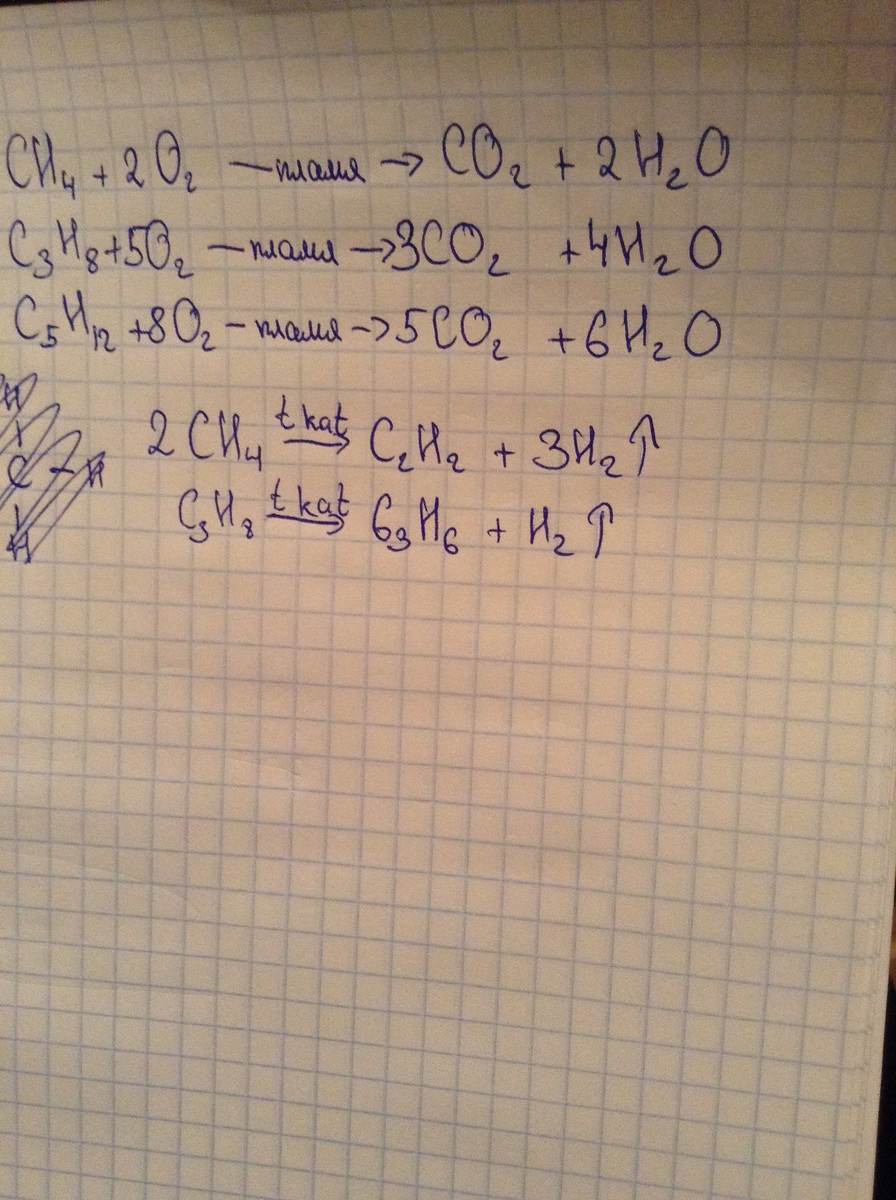 CH₄ + 2O₂ —пламя→ CO₂ + 2H₂O
C₃H₈+5O₂ —пламя→3CO₂ +4H₂O
C₅H₁₂+8O₂ —пламя→5CO₂ +6H₂O
2CH₄ t kat → C₂H₂ + 3H₂↑
C₃H₈ t kat → 6₃H₆ + H₂↑